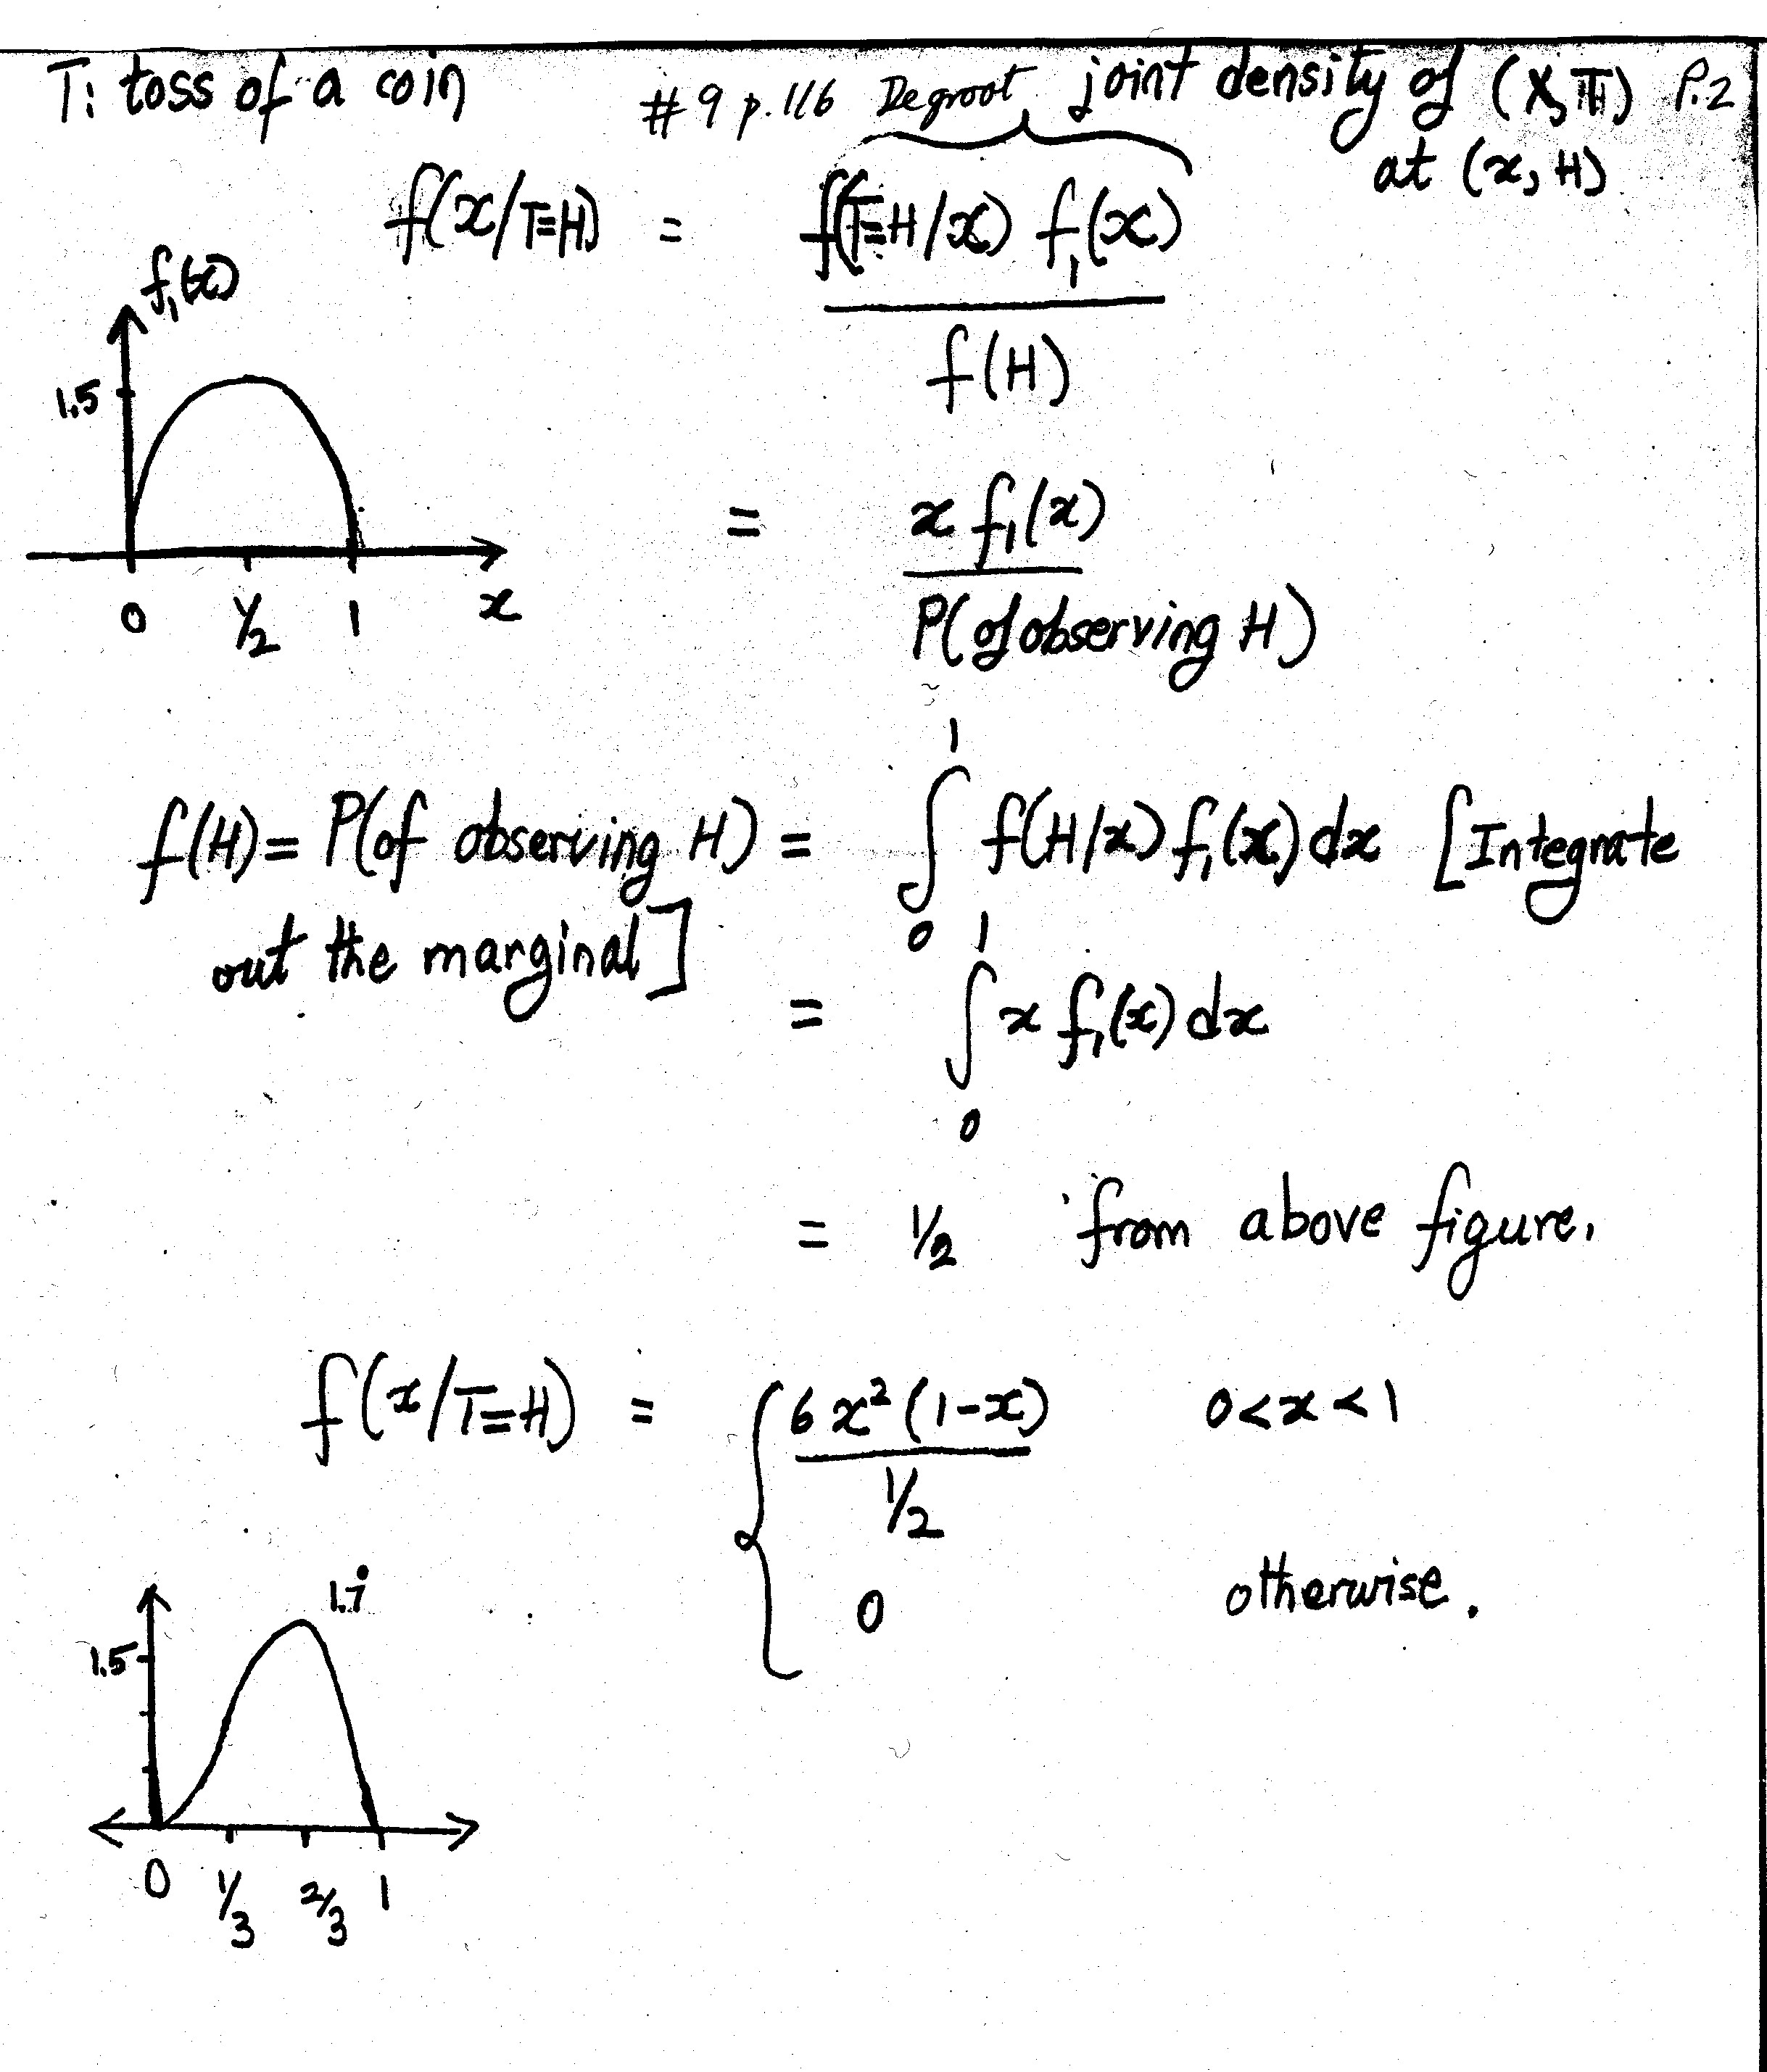 T: toss of a coin
#9 p.116 Degroot
joint density of (X,T) P.2
at (x, H)
f(x/T=H) = f(T=H/x) f₁(x)
f(H)
f₁(x)
1.5
0 1/2 1 x
= x f₁(x)
P(of observing H)
f(H) = P(of observing H) = ∫₀¹ f(H/x) f₁(x) dx [Integrate
out the marginal]
= ∫₀¹ x f₁(x) dx
= 1/2 from above figure.
f(x/T=H) = { 6x²(1-x) 0<x<1
1/2
0 otherwise.
1.7̇
1.5
0 1/3 2/3 1